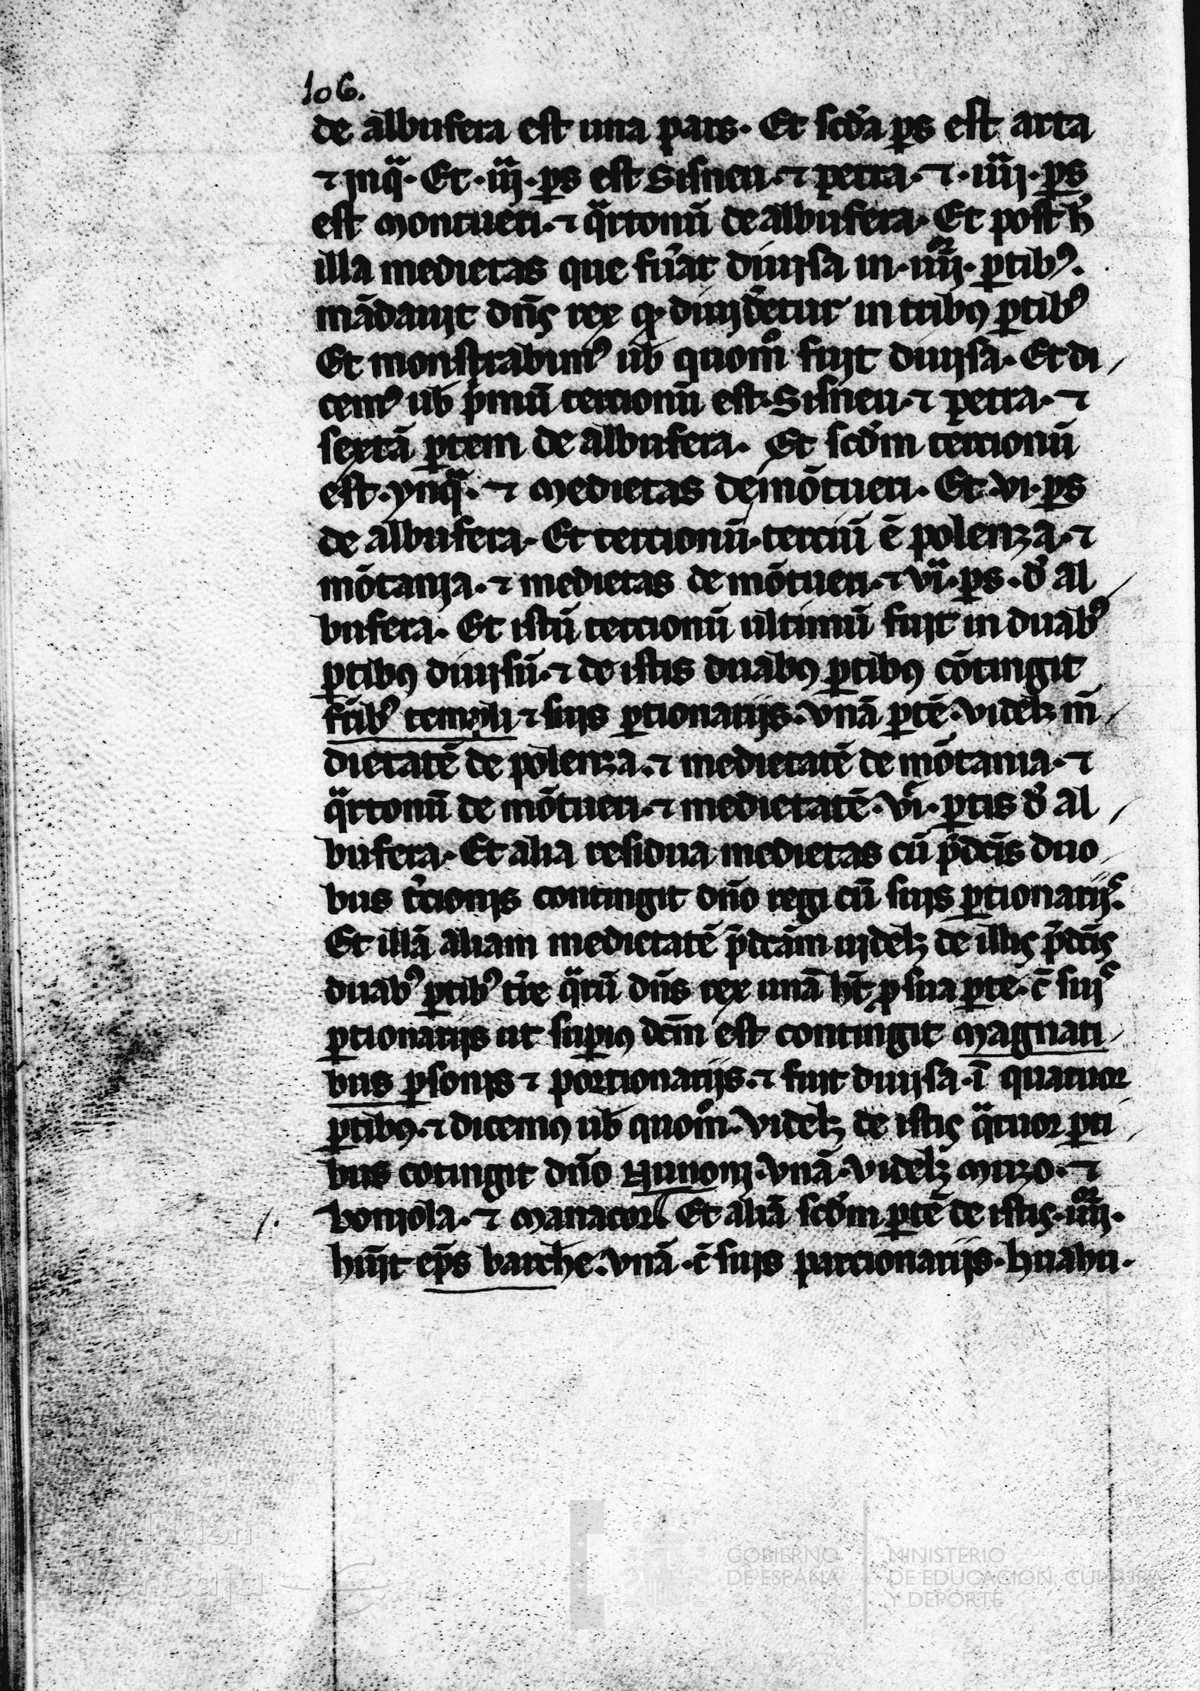 106.
de albufera est una pars. Et scda ps est arta
⁊ jnq̃. Et .iij. ps est Sisneu. ⁊ petra. ⁊ .iiij. ps
est Montueri. ⁊ q̃rtonũ de albufera. Et post h̃
illa medietas que fũat diuisa in .iiij. ptibꝰ.
mãdauit dñs rex ꝙ diuidetur in tribꝰ ptibꝰ
Et monstrabimꝰ ub̃ quom̊ fuit diuisa. Et di
cemꝰ ub̃ p̃mũ tercionũ est. Sisneu. ⁊ petra. ⁊
sextã ptem de albufera. Et scdm tercionũ
est. ynq̃. ⁊ Medietas de mõtueri. Et vi. ps
de albufera. Et tercionũ. terciũ ẽ polenza. ⁊
mõtanja. ⁊ medietas de mõtueri. ⁊ vi. ps. d̃ al
bufera. Et istũ tercionũ ultimũ fuit in duabꝰ
ptibꝰ diuisũ. ⁊ de istis duabꝰ ptibꝰ cõtingit
fr̃ibꝰ templi ⁊ suis ptionarijs. Vnã ptẽ. Videlꝫ m̃
dietatẽ de polenza. ⁊ medietatẽ de mõtania. ⁊
q̃rtonũ de mõtueri. ⁊ medietatẽ. vi. ptis d̃ al
bufera. Et alia residua medietas cũ p̃dc̃is duo
bus t̃cionis contingit dño regi cũ suis ptionarijs.
Et illã aliam medietatẽ p̃dcãm uidelꝫ de illis p̃dc̃is
duabꝰ ptibꝰ t̃re q̃rũ dñs rex unã ht̃ p sua pte. c̃ suis
ptionarijs ut supiꝰ dcm̃ est contingit Magnati
bus psonis ⁊ portionarijs. ⁊ fuit diuisa. ĩ quatuor
ptibꝰ. ⁊ dicemꝰ ub̃ quom̊. Videlꝫ de istis q̃tuor pti
bus cotingit dño Nunoni. Vnã. Videlꝫ Muzo. ⁊
boniola. ⁊ Manacor. Et aliã scdm ptẽ de istis. iiij.
hũit ep̃s barche. Vnã. c̃ suis parcionarijs. huahu.
GOBIERNO DE ESPAÑA
MINISTERIO DE EDUCACIÓN, CULTURA Y DEPORTE